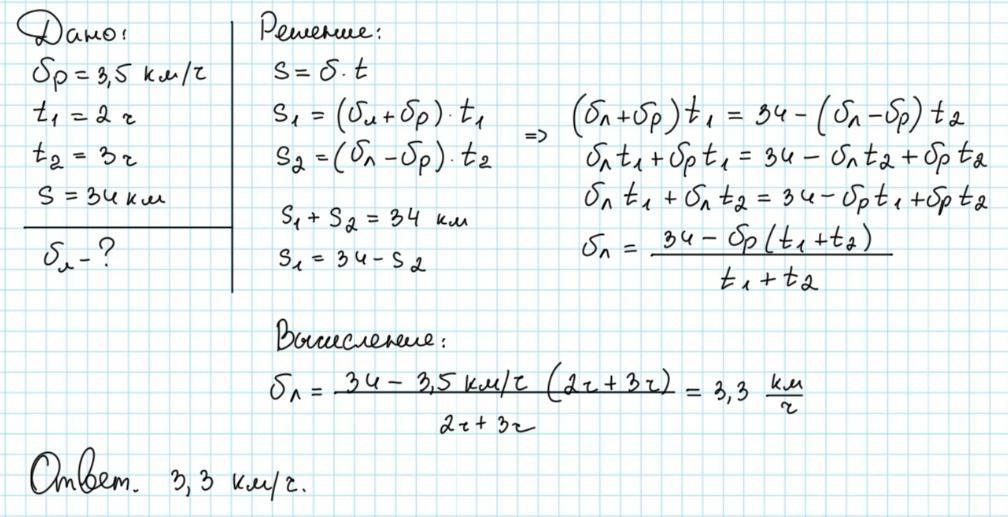 Дано:
υр = 3,5 км/ч
t₁ = 2 ч
t₂ = 3ч
S = 34 км
υл - ?
Решение:
S = υ · t
S₁ = (υл + υр) · t₁
S₂ = (υл - υр) · t₂
S₁ + S₂ = 34 км
S₁ = 34 - S₂
=> (υл + υр) t₁ = 34 - (υл - υр) t₂
υл t₁ + υр t₁ = 34 - υл t₂ + υр t₂
υл t₁ + υл t₂ = 34 - υр t₁ + υр t₂
υл = 34 - υр (t₁ + t₂) / t₁ + t₂
Вычисление:
υл = 34 - 3,5 км/ч (2ч + 3ч) / 2ч + 3ч = 3,3 км/ч
Ответ. 3,3 км/ч.